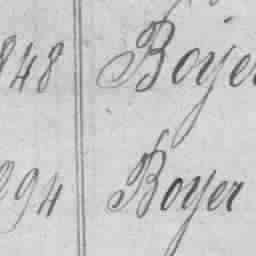 848 Boyer
294 Boyer